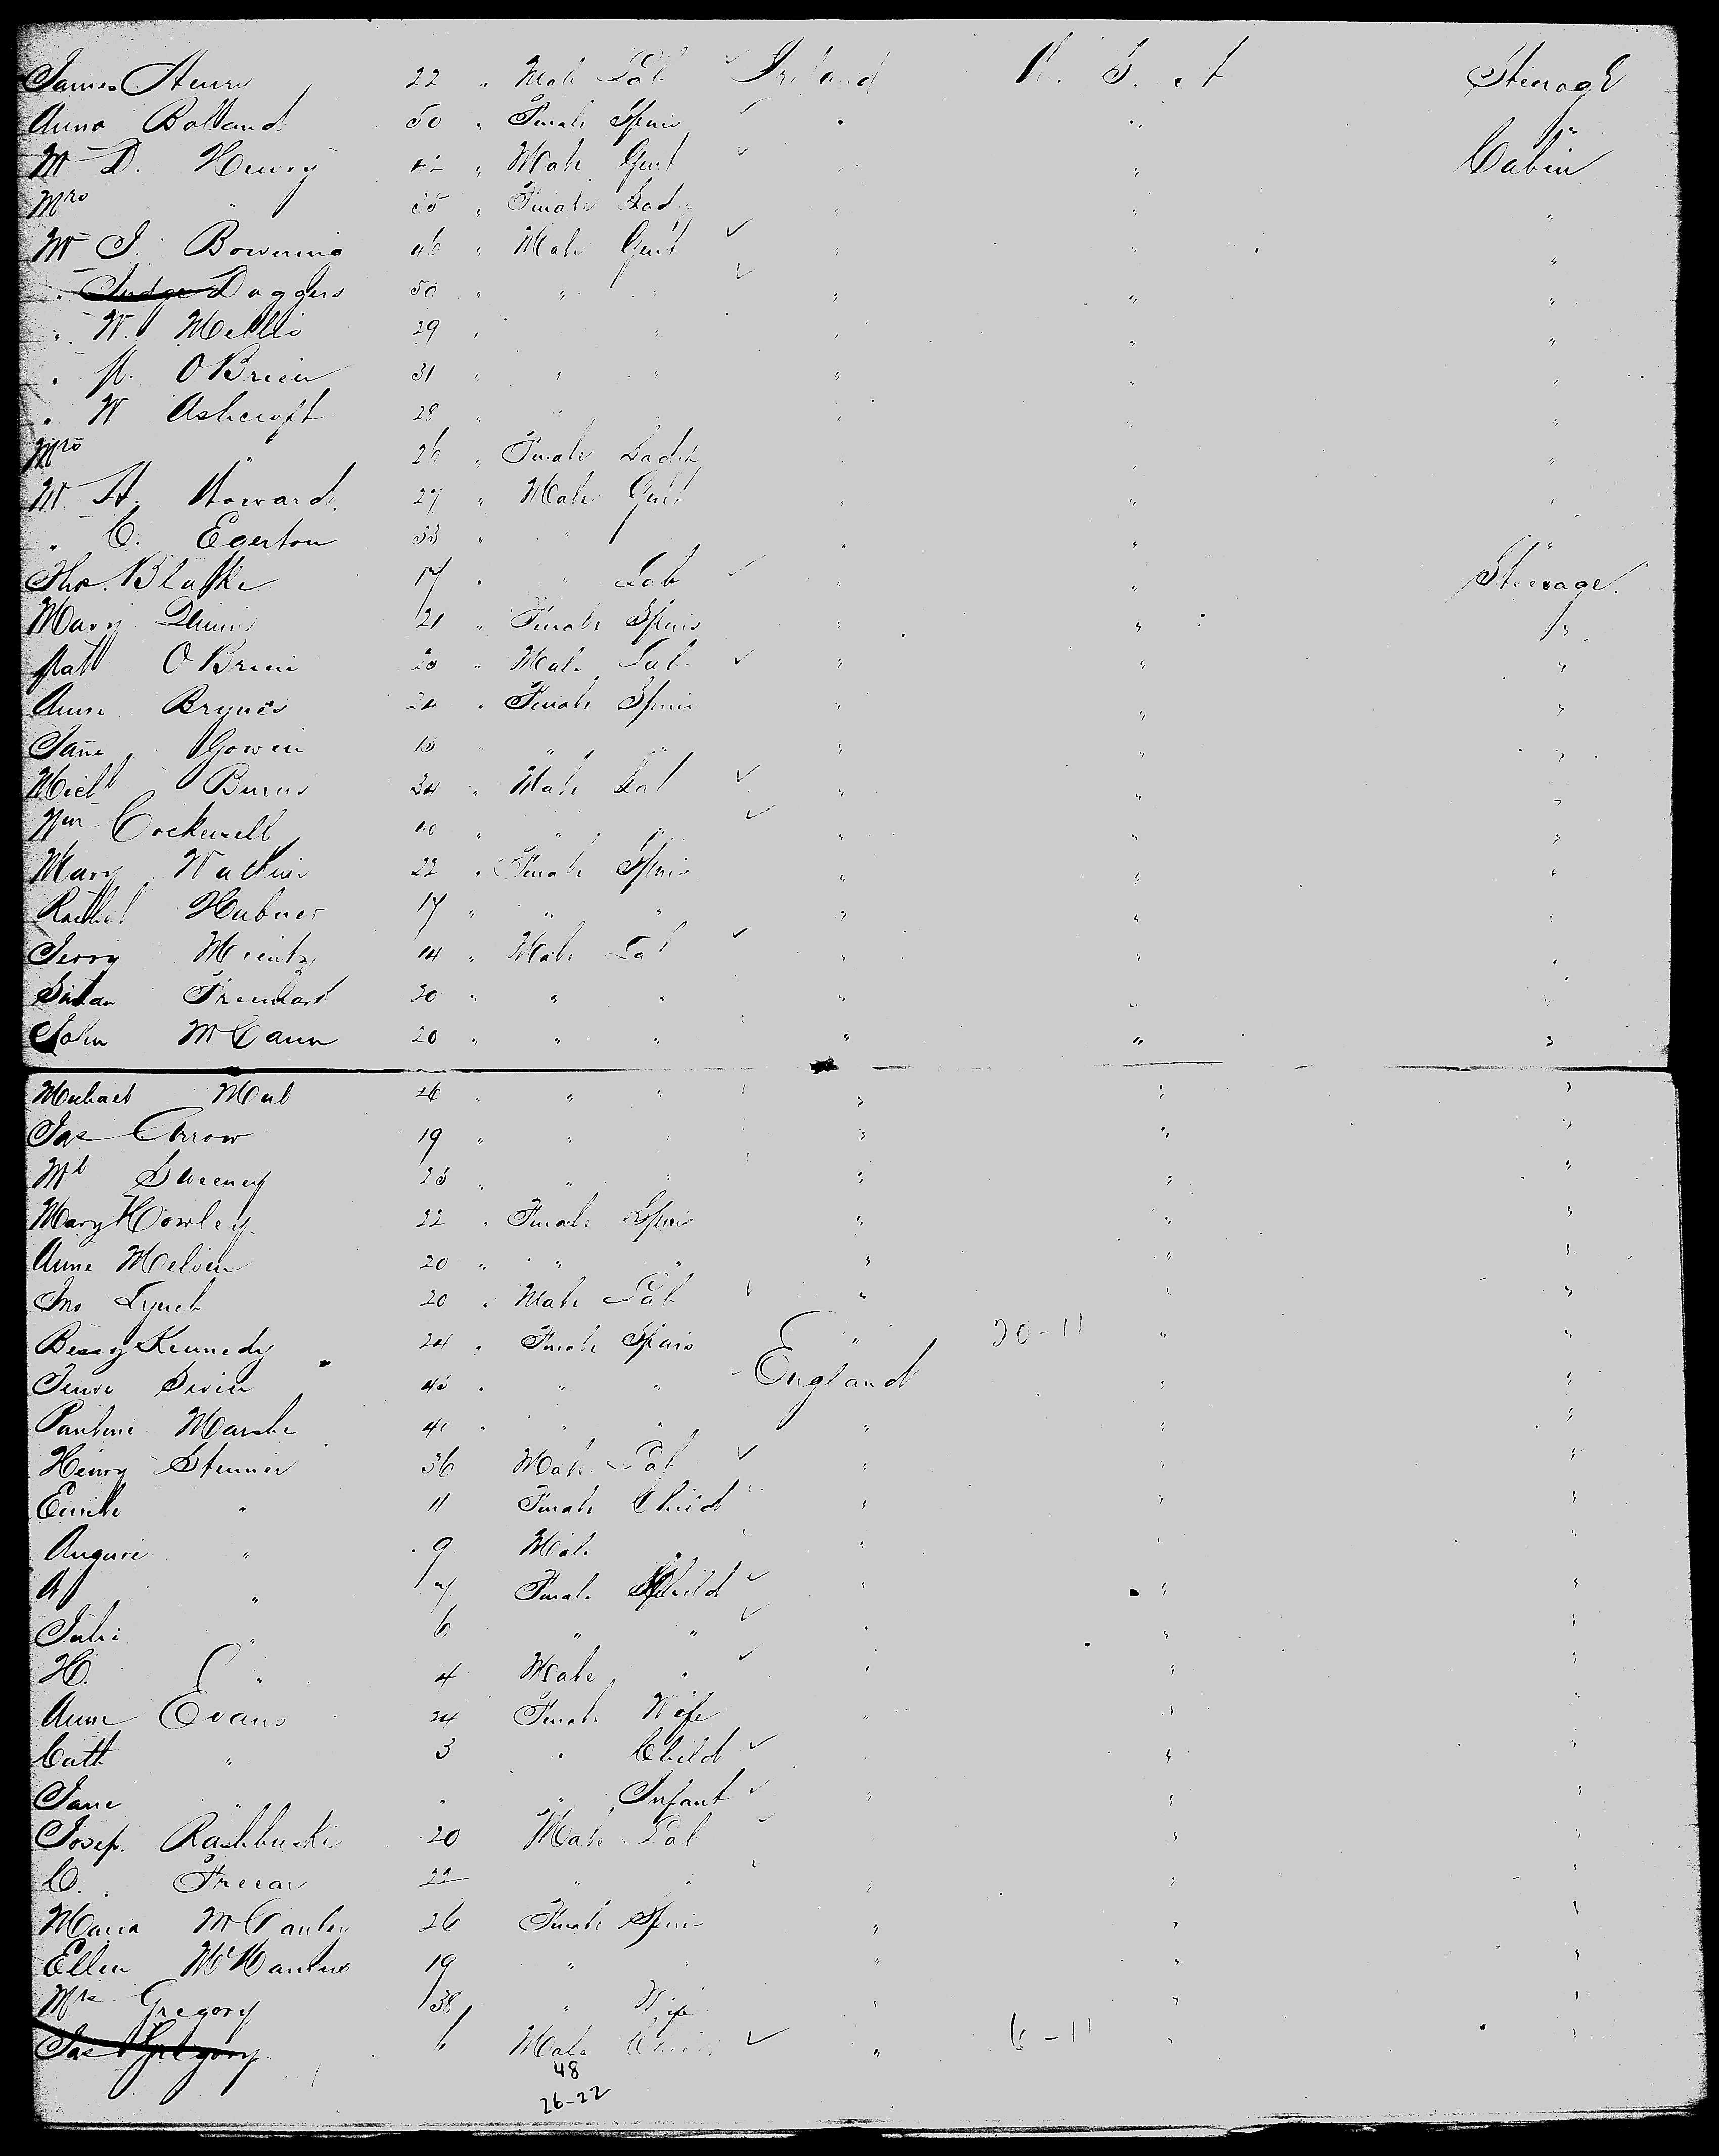 James Henry 22 " Male Lab Ireland U. S. A Steerage
Anna Bolland 50 " Female Spins " " "
Mr D. Henry 42 " Male Gent " " Cabin
Mrs " 35 " Female Lady " " "
Mr J. Bowning 46 " Male Gent " " "
" Judge Daggers 50 " " " " " "
" W. Mellis 29 " " " " " "
" P. O'Brien 31 " " " " " "
" W Ashcroft 28 " " " " " "
Mrs " 26 " Female Lady " " "
Mr H. Howard 27 " Male Gent " " "
" C. Egerton 33 " " " " " "
Thos. Blake 17 " " Lab " " Steerage.
Mary 21 " Female Spins " " "
Pat O'Brien 20 " Male Lab " " "
Anne Brynes 24 " Female Spins " " "
Jane Gowen 18 " " " " " "
Michl Burns 34 " Male Lab " " "
Wm Cockerell " " " " " "
Mary Watkins 22 " Female Spins " " "
Rachel Hubner 17 " " " " " "
Jerry 14 " Male Lab " " "
30 " " " " " "
John McCann 20 " " " " " "
Michael 26 " " " " " "
Jas Arrow 19 " " " " " "
Ml Sweeney 23 " " " " " "
Mary Howley 22 " Female Spins " " "
Anne Melvin 20 " " " " " "
Jno Lynch 20 " Male Lab " " "
Bessy Kennedy 24 " Female Spins " 20-11 " "
43 " " " England " "
Pauline 40 " " " " " "
Henry Stenner 36 Male Lab " " "
" 11 Female Child " " "
" 9 Male " " " "
A " 7 Female Child " " "
" 6 " " " " "
H. " 4 Male " " " "
Anne Evans 24 Female Wife " " "
Cath " 3 " Child " " "
Jane " " " Infant " " "
Josep. 20 Male Lab " " "
C. 22 " " " " "
Maria 26 Female Spins " " "
Ellen 19 " " " " "
Mrs Gregory 38 " Wife " " "
Jas Gregory 6 Male Child " 6-11 " "
48
26-22